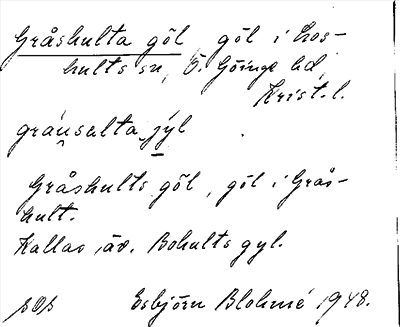 Gråshulta göl göl i Los-
hults sn, Ö. Göinge hd,
Krist. l.
gráusalta jýl
Gråshults göl, göl i Grås-
hult.
Kallas äv. Bohults gyl.
Esbjörn Blohmé 1948.